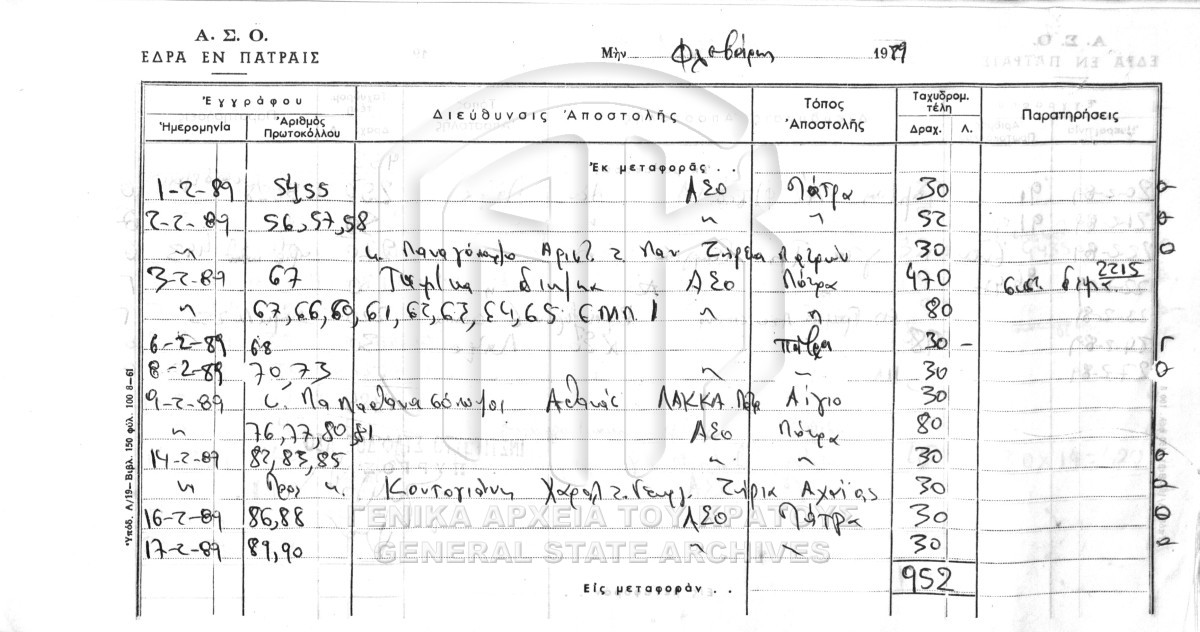 Α. Σ. Ο.
ΕΔΡΑ ΕΝ ΠΑΤΡΑΙΣ
Μὴν Φλεβάρης 1989
Ἐγγράφου Διεύθυνσις Ἀποστολῆς Τόπος Ἀποστολῆς Ταχυδρομ. τέλη Παρατηρήσεις
Ἡμερομηνία Ἀριθμὸς Πρωτοκόλλου Δραχ. Λ.
Ἐκ μεταφορᾶς . .
1-2-89 54,55 ΑΣΟ Πάτρα 30
2-2-89 56,57,58 " " 52
" κ. Παναγόπουλο Αριστ. τ. Παν Πατρών 30
3-2-89 67 ΑΣΟ Πάτρα 470 συστ. 2215
" 67,66,60,61,62,63,64,65 " " 80
6-2-89 68 Πάτρα 30 –
8-2-89 70,73 " " 30
9-2-89 κ. Παπαθανασόπουλοι ΛΑΚΚΑ Αίγιο 30
" 76,77,80,81 ΑΣΟ Πάτρα 80
14-2-89 82,83,85 " " 30
" Προς κ. Κουτογιάννη Χαραλ τ. Γεωργ. Αχαΐας 30
16-2-89 86,88 ΑΣΟ Πάτρα 30
17-2-89 89,90 " " 30
952
Εἰς μεταφορὰν . .
Ὑπόδ. Λ/19 – Βιβλ. 150 φύλ. 100 8–61
ΓΕΝΙΚΑ ΑΡΧΕΙΑ ΤΟΥ ΚΡΑΤΟΥΣ
GENERAL STATE ARCHIVES